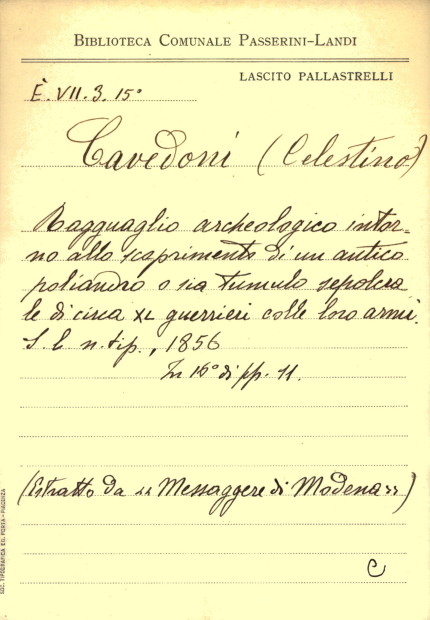 BIBLIOTECA COMUNALE PASSERINI-LANDI
LASCITO PALLASTRELLI
E. VII. 3. 15°
Cavedoni (Celestino)
Ragguaglio archeologico intor-
no allo scoprimento di un antico
poliandro o sia tumulo sepolcra
le di circa XL guerrieri colle loro armi.
S. l. n. tip., 1856
In 16° di pp. 11.
(Estratto da « Messaggere di Modena »)
C
SOC. TIPOGRAFICA ED. PORTA - PIACENZA